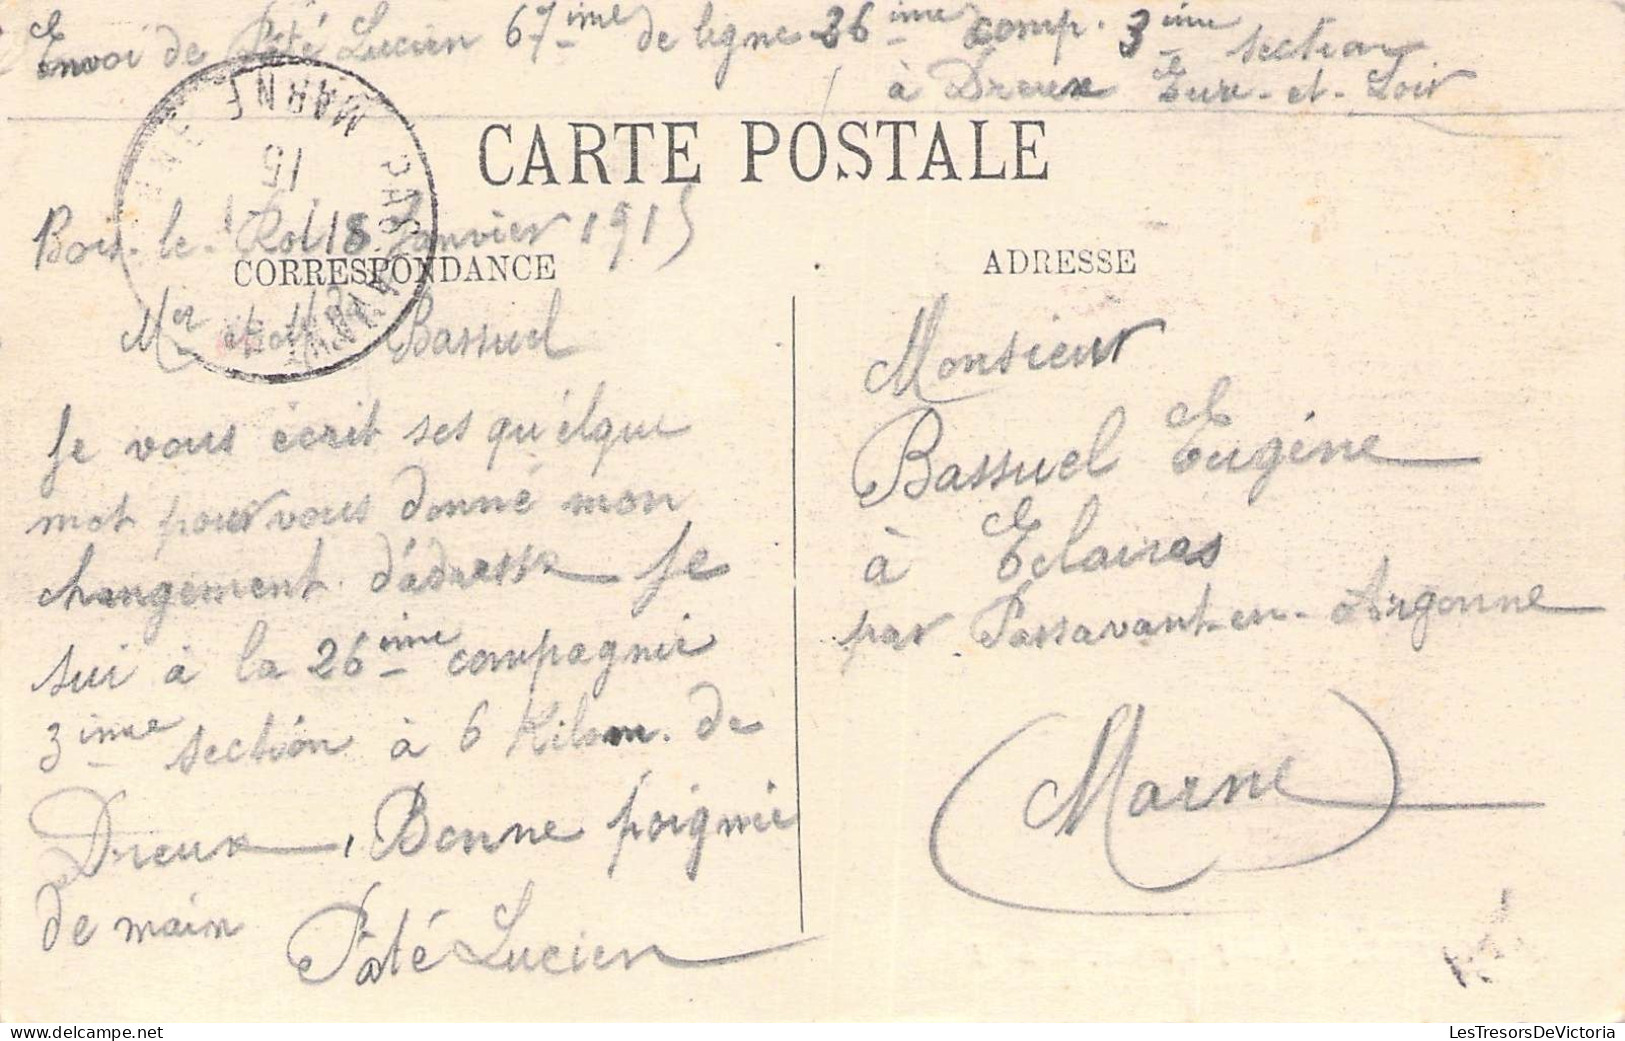 Envoi de Pâté Lucien 67ième de ligne 26ième comp. 3ième section
à Dreux Eure-et-Loir
CARTE POSTALE
MARNE
15
Bois-le-Roi 18 Janvier 1915
CORRESPONDANCE
Mr et Bassuel
Je vous écrit ses qu'elque
mot pour vous donné mon
changement d'adresse Je
sui à la 26ième compagnie
3ième section à 6 Kilom. de
Dreux, Bonne poignie
de main
Pâté Lucien
ADRESSE
Monsieur
Bassuel Eugène
à Eclaires
par Passavant-en-Argonne
(Marne)
LesTresorsDeVictoria
LesTresorsDeVictoria